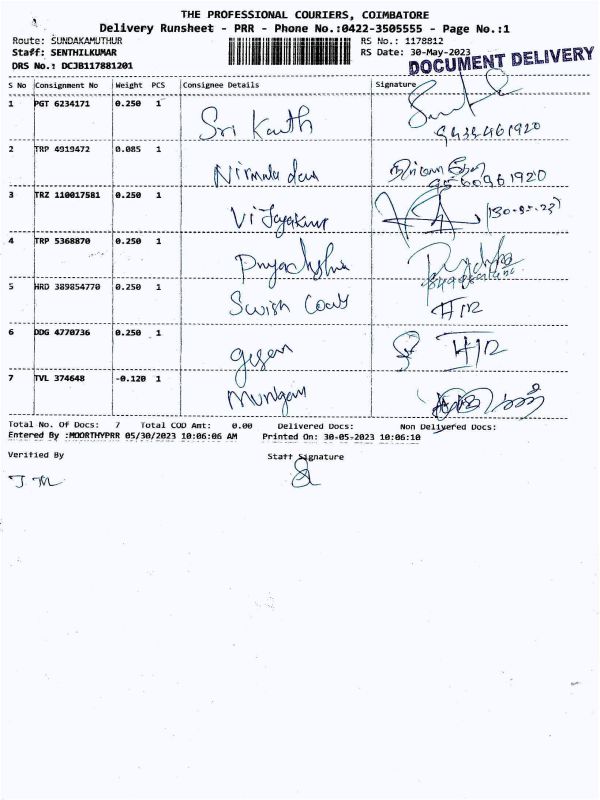 THE PROFESSIONAL COURIERS, COIMBATORE
Delivery Runsheet - PRR - Phone No.:0422-3505555 - Page No.:1
Route: SUNDAKAMUTHUR RS No.: 1178812
Staff: SENTHILKUMAR RS Date: 30-May-2023
DRS No.: DCJB117881201 DOCUMENT DELIVERY
S No Consignment No Weight PCS Consignee Details Signature
1 PGT 6234171 0.250 1
Sri Kanth
2 TRP 4919472 0.085 1
Nirmala
3 TRZ 110017581 0.250 1
Vijayakumar (30-05-23)
4 TRP 5368870 0.250 1
5 HRD 389854770 0.250 1
Swish
6 DDG 4770736 0.250 1
7 TVL 374648 -0.120 1
Murugan
Total No. Of Docs: 7 Total COD Amt: 0.00 Delivered Docs: Non Delivered Docs:
Entered By :MOORTHYPRR 05/30/2023 10:06:06 AM Printed On: 30-05-2023 10:06:10
Verified By Staff Signature